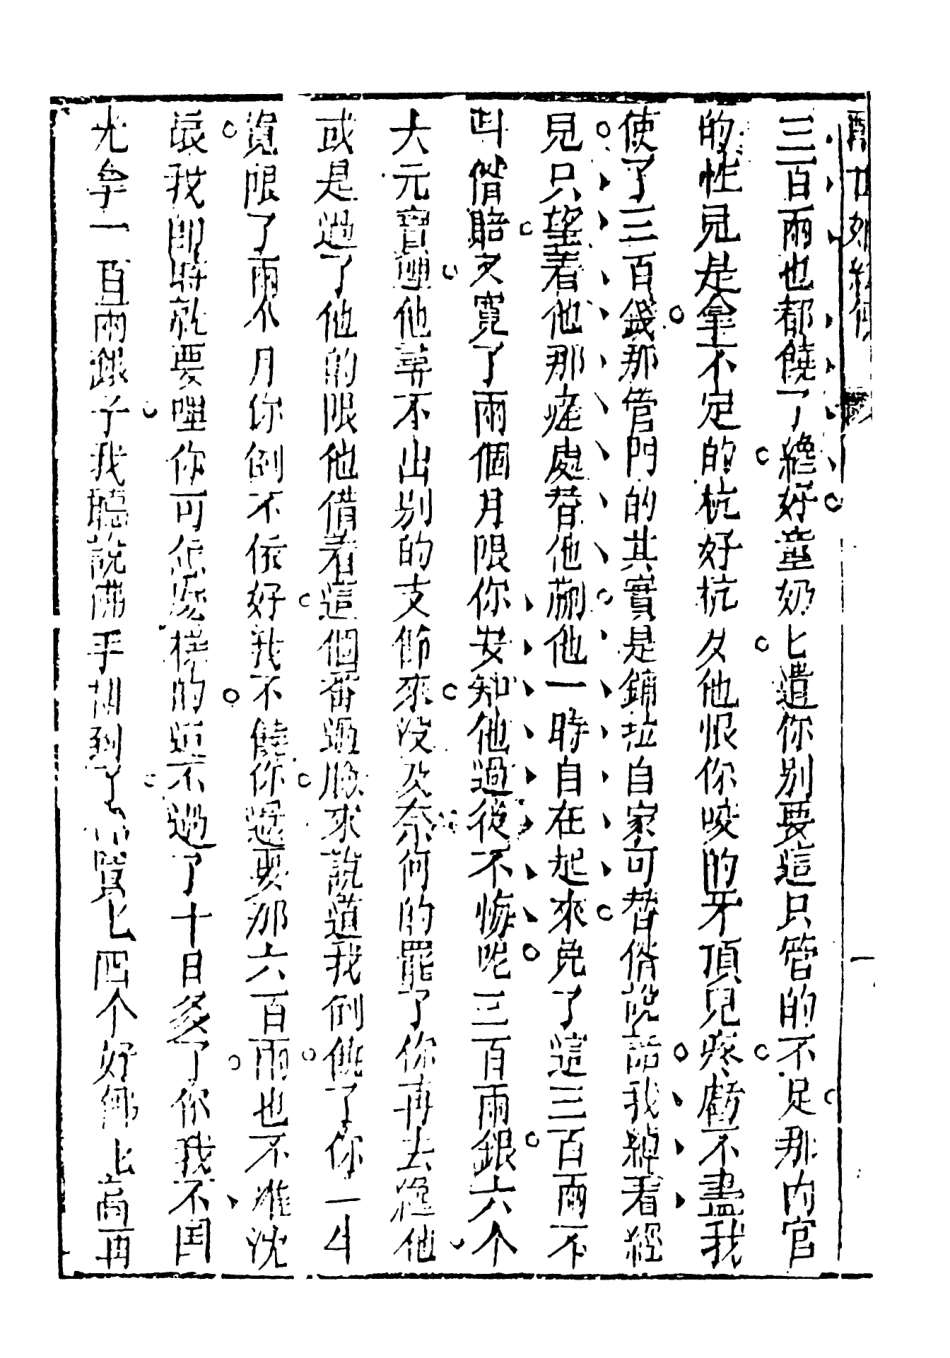 醒世姻緣傳
三百兩也都饒了纔好童奶匕遣你别要這只管的不足那内官
的性兒是拿不定的杭好杭久他恨你咬的牙頂兒疼虧不盡我
使了三百錢那管門的其實是鋪拉自家可替俺說話我綽着經
見只望着他那痒處替他蒯他一時自在起來免了這三百兩不
叫偺賠又寬了兩個月限你安知他過後不悔呢三百兩銀六个
大元寶哩他尋不出别的支節來没及奈何的罷了你再去他
或是過了他的限他借着這個番過臉來說道我倒饒了你一半
寬限了兩个月你倒不依好我不饒你還要那六百兩也不准
我即時就要哩你可怎麽樣的這不過了十日多了你我不
先拿一百兩銀子我聽說佛手柑到了買匕四个好佛匕再